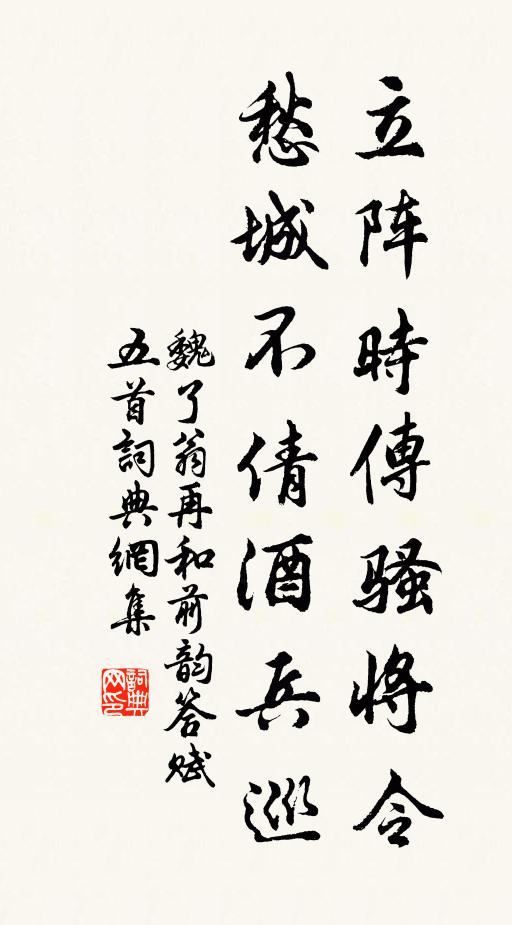 立阵時傳骚將令
愁城不倩酒兵巡
魏了翁再和前韵答赋
五首詞典網集
詞典
网印